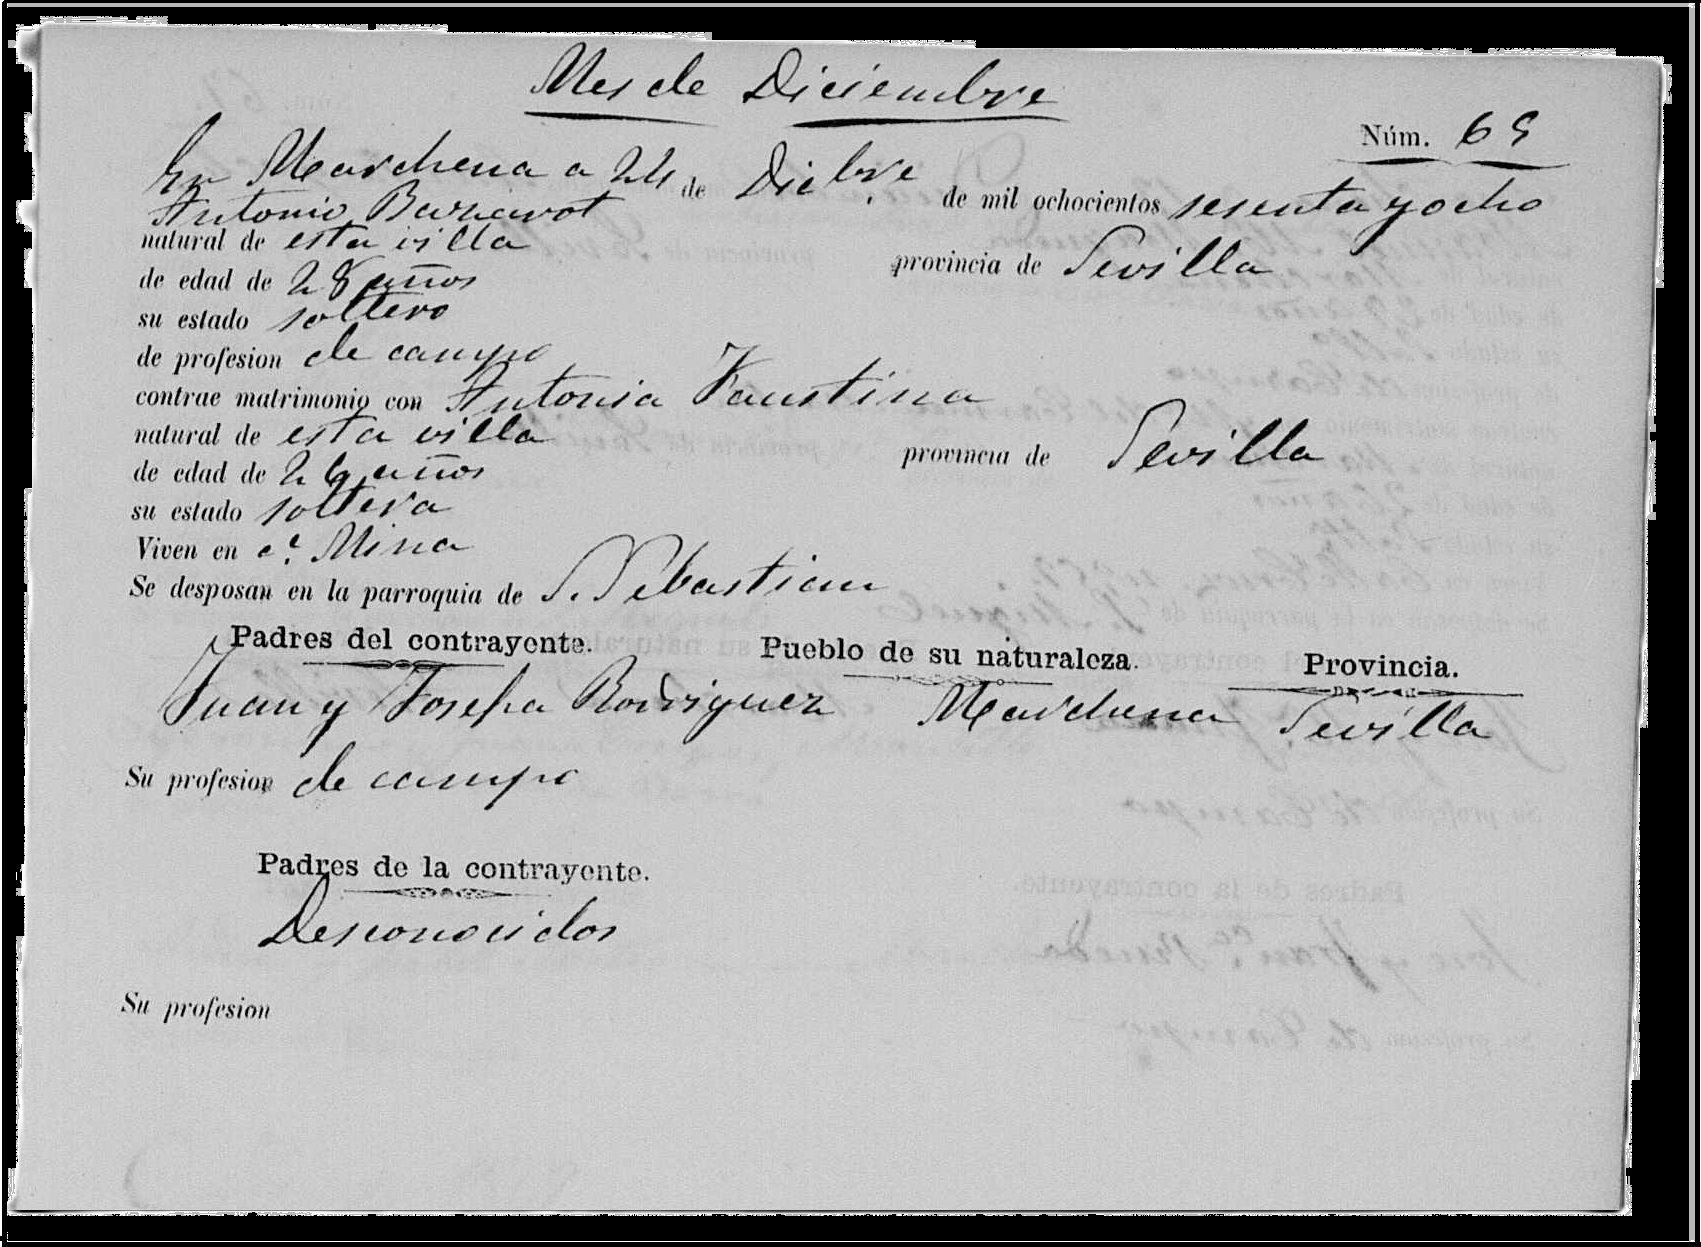 Mes de Diciembre
Núm. 69
En Marchena a 24 de Dicbre. de mil ochocientos sesenta y ocho
Antonio
natural de esta villa provincia de Sevilla
de edad de 28 años
su estado soltero
de profesion de campo
contrae matrimonio con Antonia Faustina
natural de esta villa provincia de Sevilla
de edad de 26 años
su estado soltera
Viven en c.e Mina
Se desposan en la parroquia de S. Sebastian
Padres del contrayente. Pueblo de su naturaleza. Provincia.
Juan y Josefa Rodriguez Marchena Sevilla
Su profesion de campo
Padres de la contrayente.
Desconocidos
Su profesion